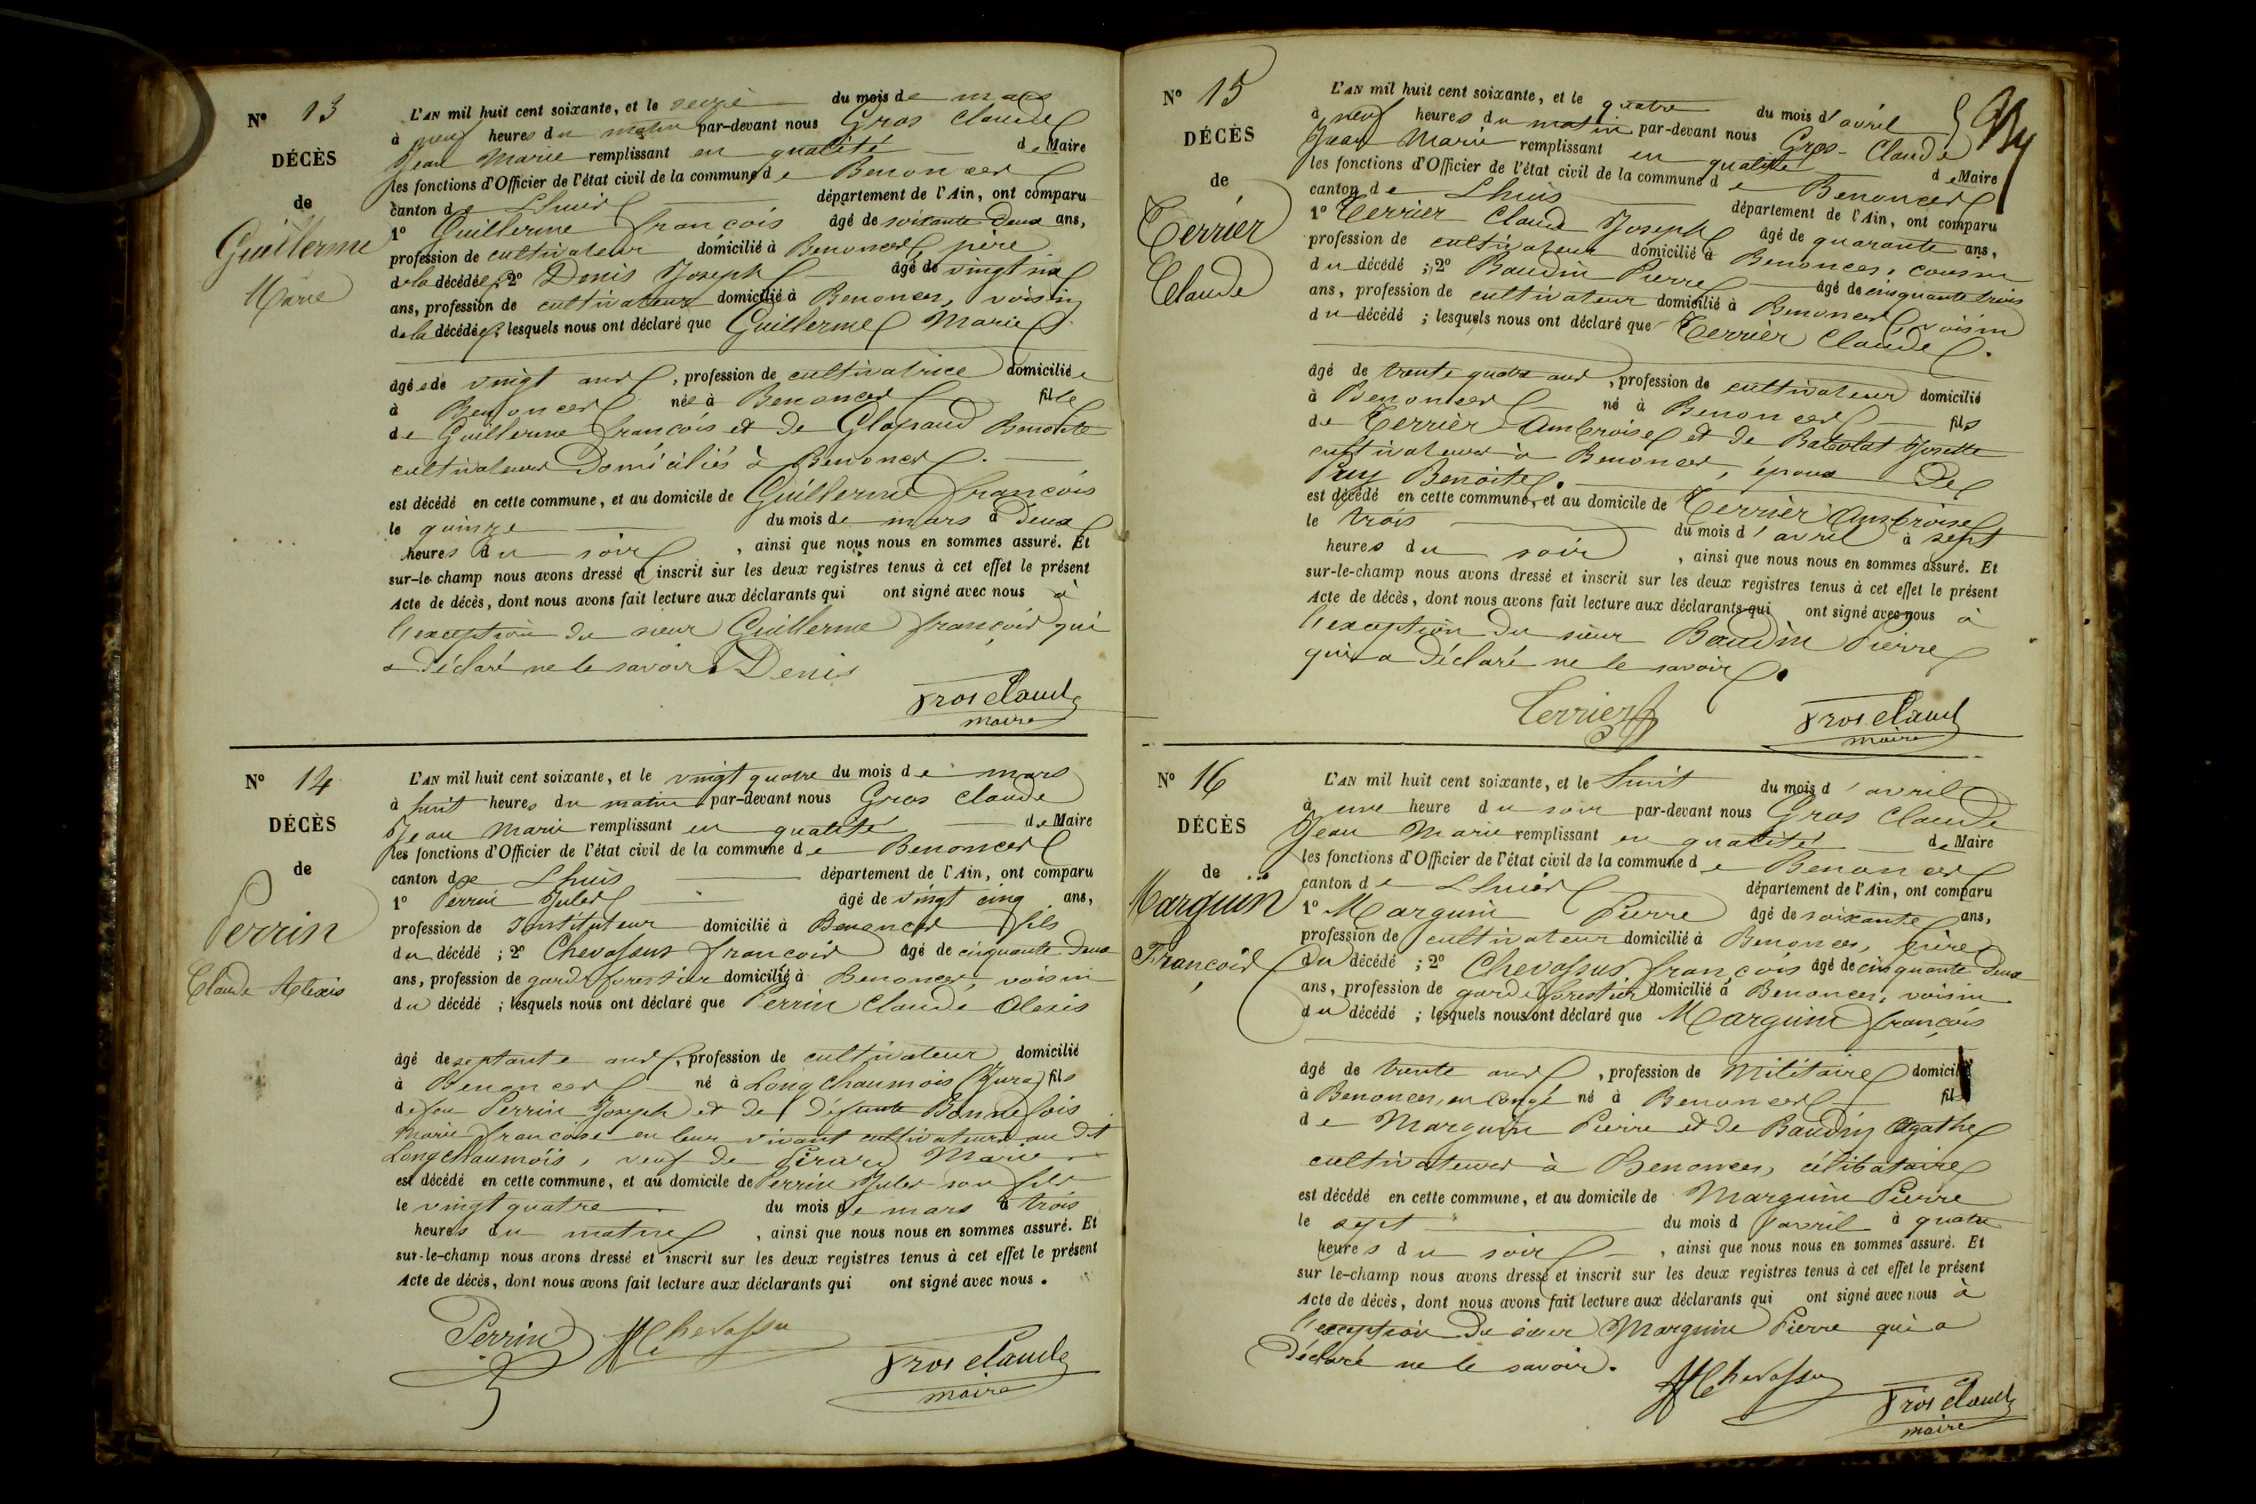 N° 13
DÉCÈS
de
Guillerme
Marie
L'AN mil huit cent soixante, et le seize du mois de mars
à neuf heures du matin par-devant nous Gros Claude
Jean Marie remplissant en qualité de Maire
les fonctions d'Officier de l'état civil de la commune de Benonces
canton de Lhuis département de l'Ain, ont comparu
1° Guillerme françois âgé de soixante deux ans,
profession de cultivateur domicilié à Benonces père
de la décédée; 2° Denis Joseph âgé de vingt six
ans, profession de cultivateur domicilié à Benonces, voisin
de la décédée; lesquels nous ont déclaré que Guillerme Marie
âgée de vingt ans, profession de cultivatrice domiciliée
à Benonces née à Benonces fille
de Guillerme françois et de Benoite
cultivateurs Domiciliés à Benonces.
est décédé en cette commune, et au domicile de Guillerme françois
le quinze du mois de mars à deux
heures du soir, ainsi que nous nous en sommes assuré. Et
sur-le-champ nous avons dressé et inscrit sur les deux registres tenus à cet effet le présent
Acte de décès, dont nous avons fait lecture aux déclarants qui ont signé avec nous à
l'exception du sieur Guillerme françois qui
a Déclaré ne le savoir. Denis
Gros Claude
maire
N° 14
DÉCÈS
de
Perrin
Claude Alexis
L'AN mil huit cent soixante, et le vingt quatre du mois de mars
à huit heures du matin par-devant nous Gros Claude
Jean Marie remplissant en qualité de Maire
les fonctions d'Officier de l'état civil de la commune de Benonces
canton de Lhuis département de l'Ain, ont comparu
1° Perrin Jules âgé de vingt cinq ans,
profession de Instituteur domicilié à Benonces fils
du décédé; 2° Chevassus françois âgé de cinquante deux
ans, profession de garde forestier domicilié à Benonces, voisin
du décédé; lesquels nous ont déclaré que Perrin Claude Alexis
âgé de septante ans, profession de cultivateur domicilié
à Benonces né à Longchaumois (Jura) fils
de feu Perrin Joseph et de défunte Bonnefois
Marie françoise en leur vivant cultivateurs au dit
Longchaumois, veuf de Girard Marie
est décédé en cette commune, et au domicile de Perrin Jules son fils
le vingt quatre du mois de mars à trois
heures du matin, ainsi que nous nous en sommes assuré. Et
sur-le-champ nous avons dressé et inscrit sur les deux registres tenus à cet effet le présent
Acte de décès, dont nous avons fait lecture aux déclarants qui ont signé avec nous.
Perrin Chevassu
Gros Claude
maire
N° 15
DÉCÈS
de
Terrier
Claude
L'AN mil huit cent soixante, et le quatre du mois d'avril
à neuf heures du matin par-devant nous Gros Claude
Jean Marie remplissant en qualité de Maire
les fonctions d'Officier de l'état civil de la commune de Benonces
canton de Lhuis département de l'Ain, ont comparu
1° Terrier Claude Joseph âgé de quarante ans,
profession de cultivateur domicilié à Benonces, cousin
du décédé; 2° Baudin Pierre âgé de cinquante trois
ans, profession de cultivateur domicilié à Benonces, voisin
du décédé; lesquels nous ont déclaré que Terrier Claude.
âgé de trente quatre ans, profession de cultivateur domicilié
à Benonces né à Benonces fils
de Terrier Ambroise et de Babolat Josette
cultivateurs à Benonces, époux De
Puy Benoite.
est décédé en cette commune, et au domicile de Terrier Ambroise
le trois du mois d'avril à sept
heures du soir, ainsi que nous nous en sommes assuré. Et
sur-le-champ nous avons dressé et inscrit sur les deux registres tenus à cet effet le présent
Acte de décès, dont nous avons fait lecture aux déclarants qui ont signé avec nous à
l'exception du sieur Baudin Pierre
qui a Déclaré ne le savoir.
Terrier
Gros Claude
maire
N° 16
DÉCÈS
de
Marguin
François
L'AN mil huit cent soixante, et le huit du mois d'avril
à une heure du soir par-devant nous Gros Claude
Jean Marie remplissant en qualité de Maire
les fonctions d'Officier de l'état civil de la commune de Benonces
canton de Lhuis département de l'Ain, ont comparu
1° Marguin Pierre âgé de soixante ans,
profession de cultivateur domicilié à Benonces,
du décédé; 2° Chevassus françois âgé de cinquante deux
ans, profession de garde forestier domicilié à Benonces, voisin
du décédé; lesquels nous ont déclaré que Marguin françois
âgé de trente ans, profession de Militaire domicilié
à Benonces, en congé né à Benonces fils
de Marguin Pierre et de Baudin Agathe
cultivateurs à Benonces, célibataire
est décédé en cette commune, et au domicile de Marguin Pierre
le sept du mois d'avril à quatre
heures du soir, ainsi que nous nous en sommes assuré. Et
sur le-champ nous avons dressé et inscrit sur les deux registres tenus à cet effet le présent
Acte de décès, dont nous avons fait lecture aux déclarants qui ont signé avec nous à
l'exception du sieur Marguin Pierre qui a
Déclaré ne le savoir.
Chevassu
Gros Claude
maire